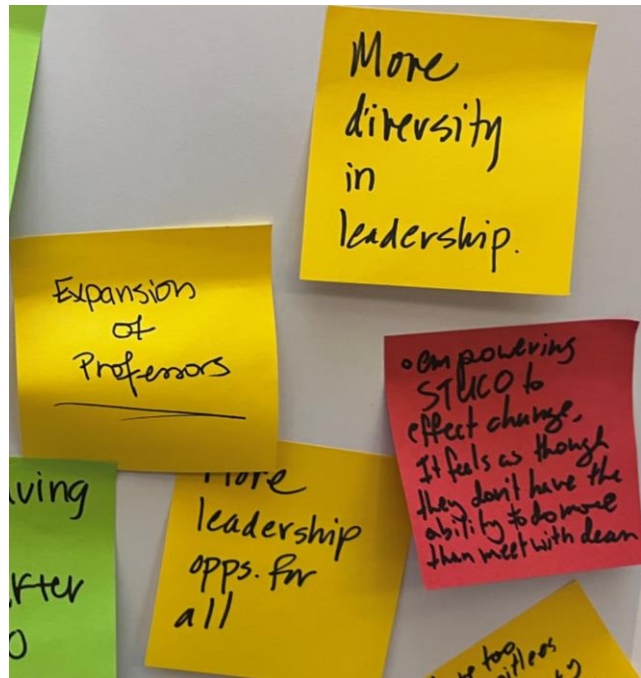 More
diversity
in
leadership.
Expansion
of
Professors
• empowering
STUCO to
effect change.
It feels as though
they don't have the
ability to do more
than meet with dean
More
leadership
opps. for
all
ving
rter
O
too